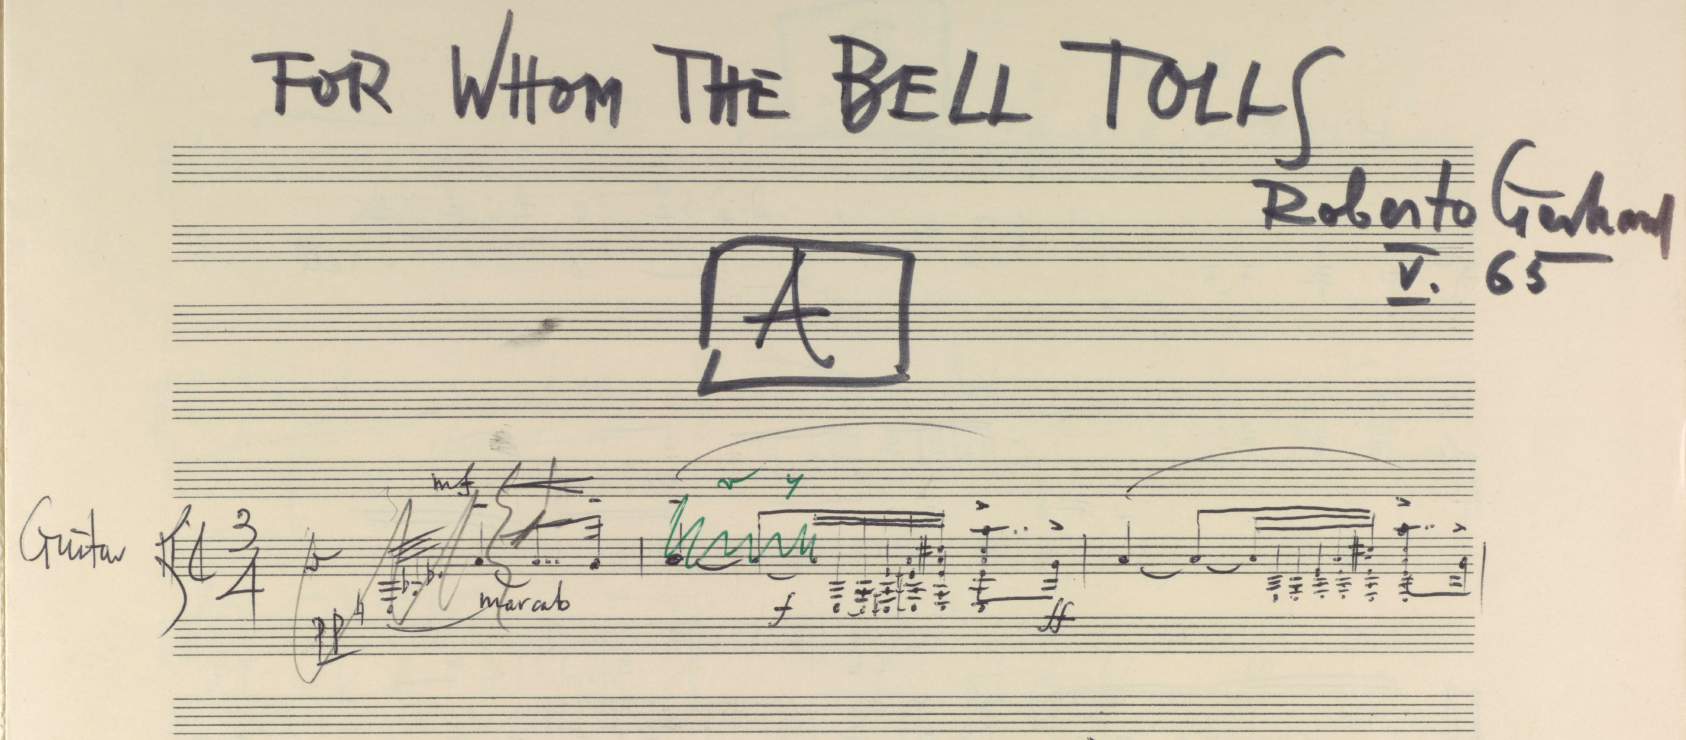 FOR WHOM THE BELL TOLLS
Roberto Gerhard
V. 65
A
mf
Guitar 3/4
pp marcato f ff